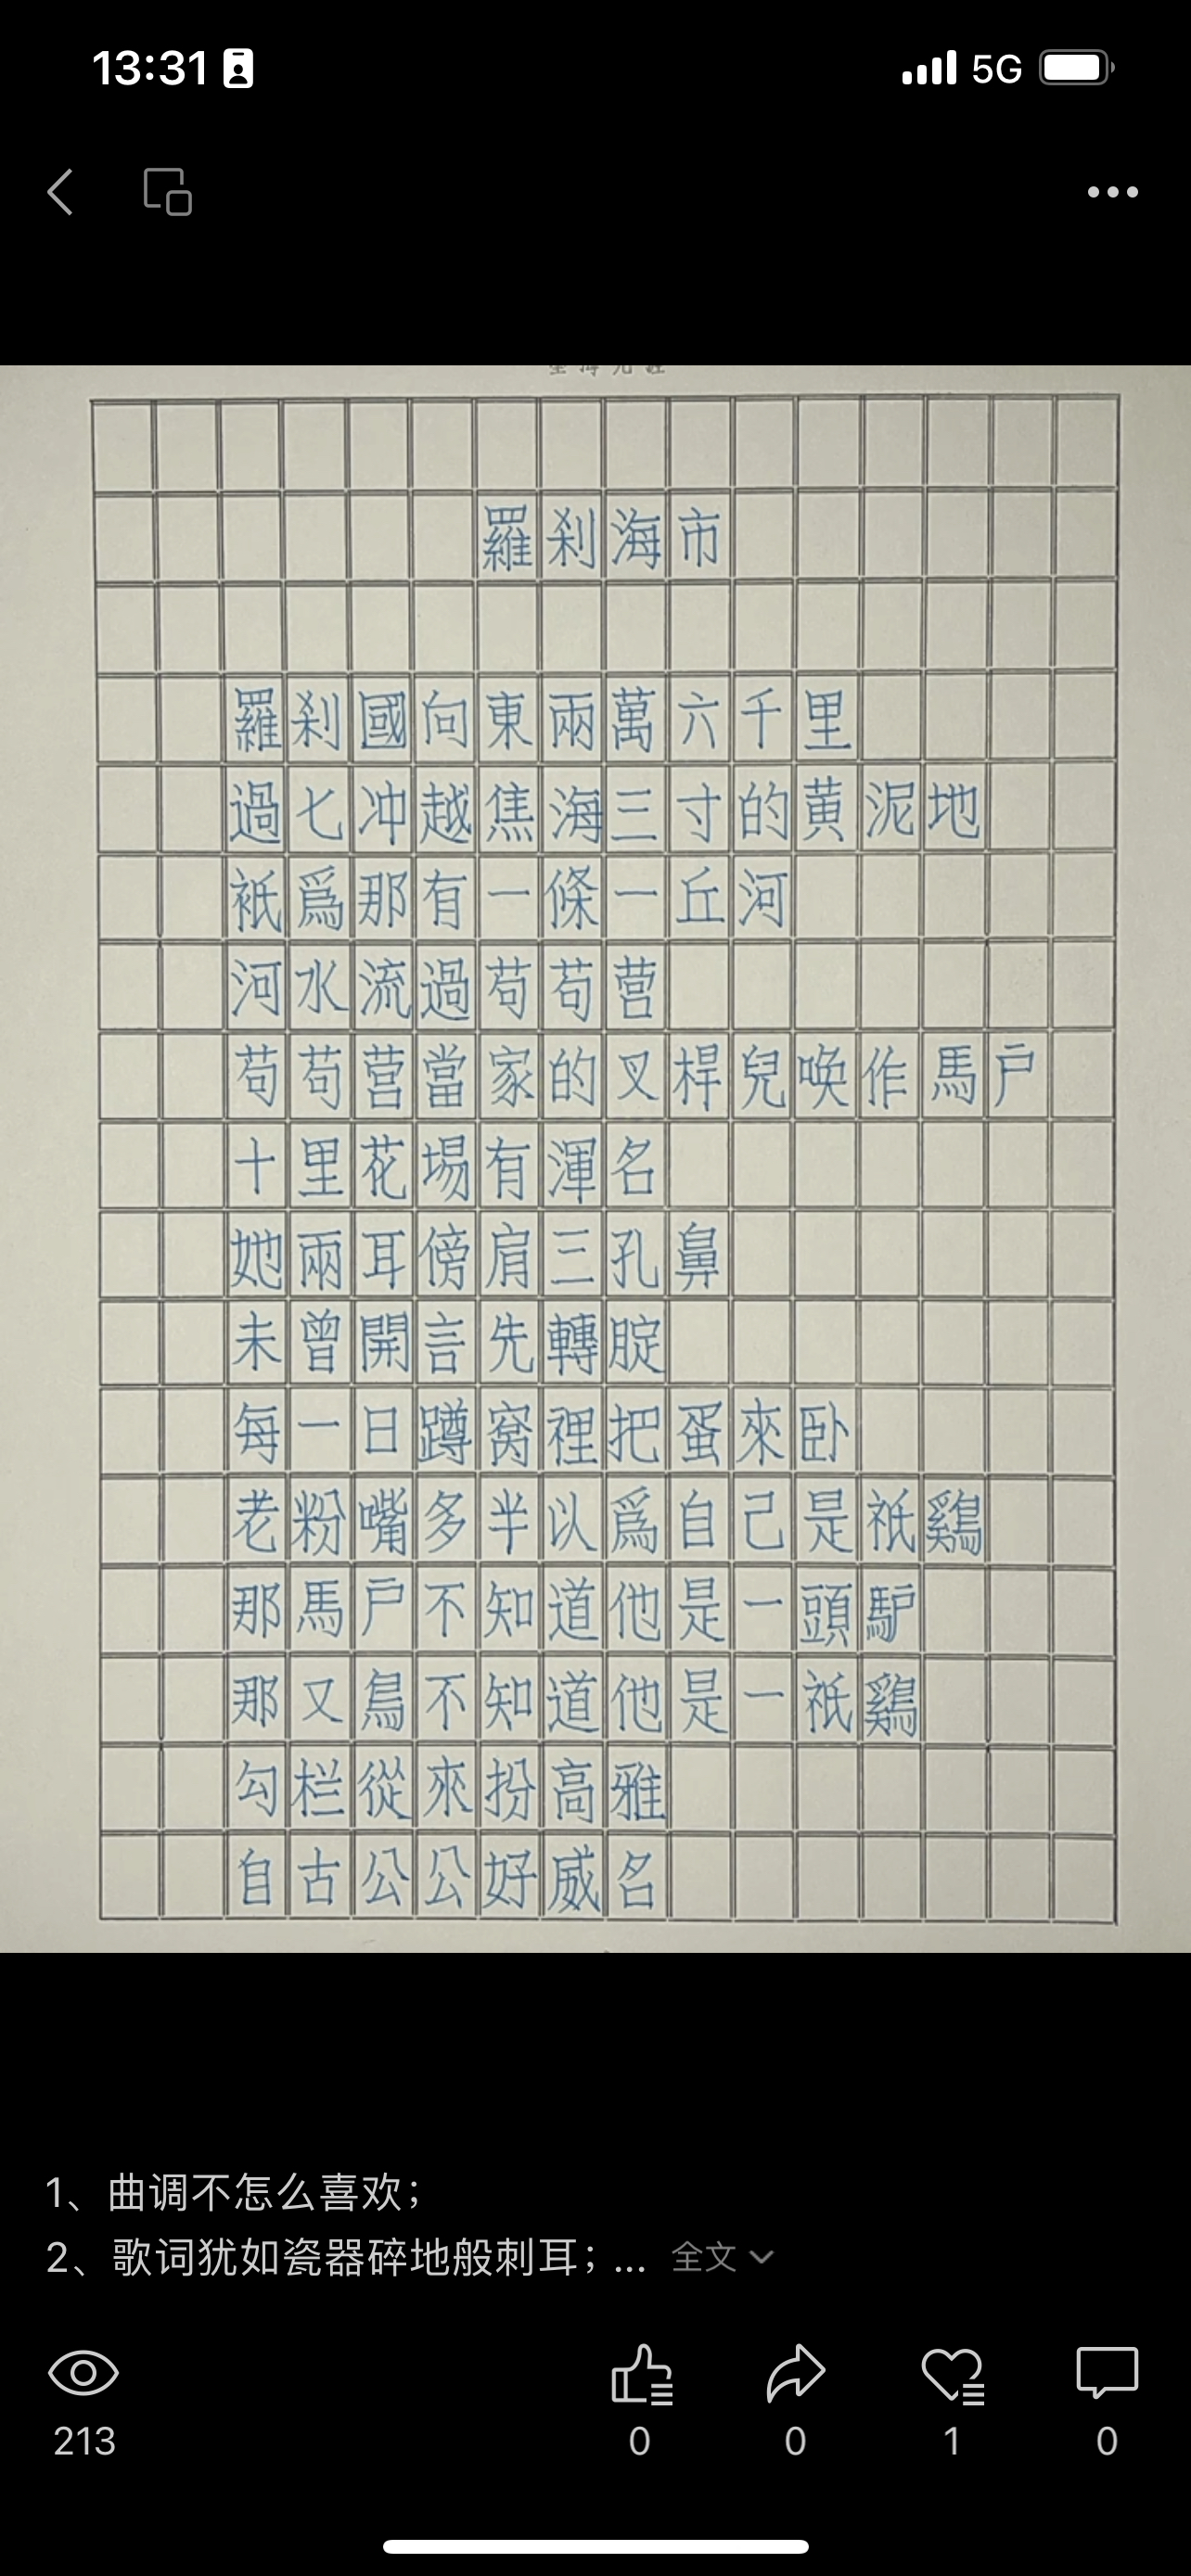 13:31
5G
羅刹海市
羅刹國向東兩萬六千里
過七冲越焦海三寸的黄泥地
衹爲那有一條一丘河
河水流過苟苟营
苟苟营當家的叉桿兒唤作馬户
十里花場有渾名
她兩耳傍肩三孔鼻
未曾開言先轉腚
每一日蹲窝裡把蛋來卧
老粉嘴多半以爲自己是祇鷄
那馬户不知道他是一頭馿
那又鳥不知道他是一祇鷄
勾栏從來扮高雅
自古公公好威名
1、曲调不怎么喜欢；
2、歌词犹如瓷器碎地般刺耳；... 全文
213
0
0
1
0